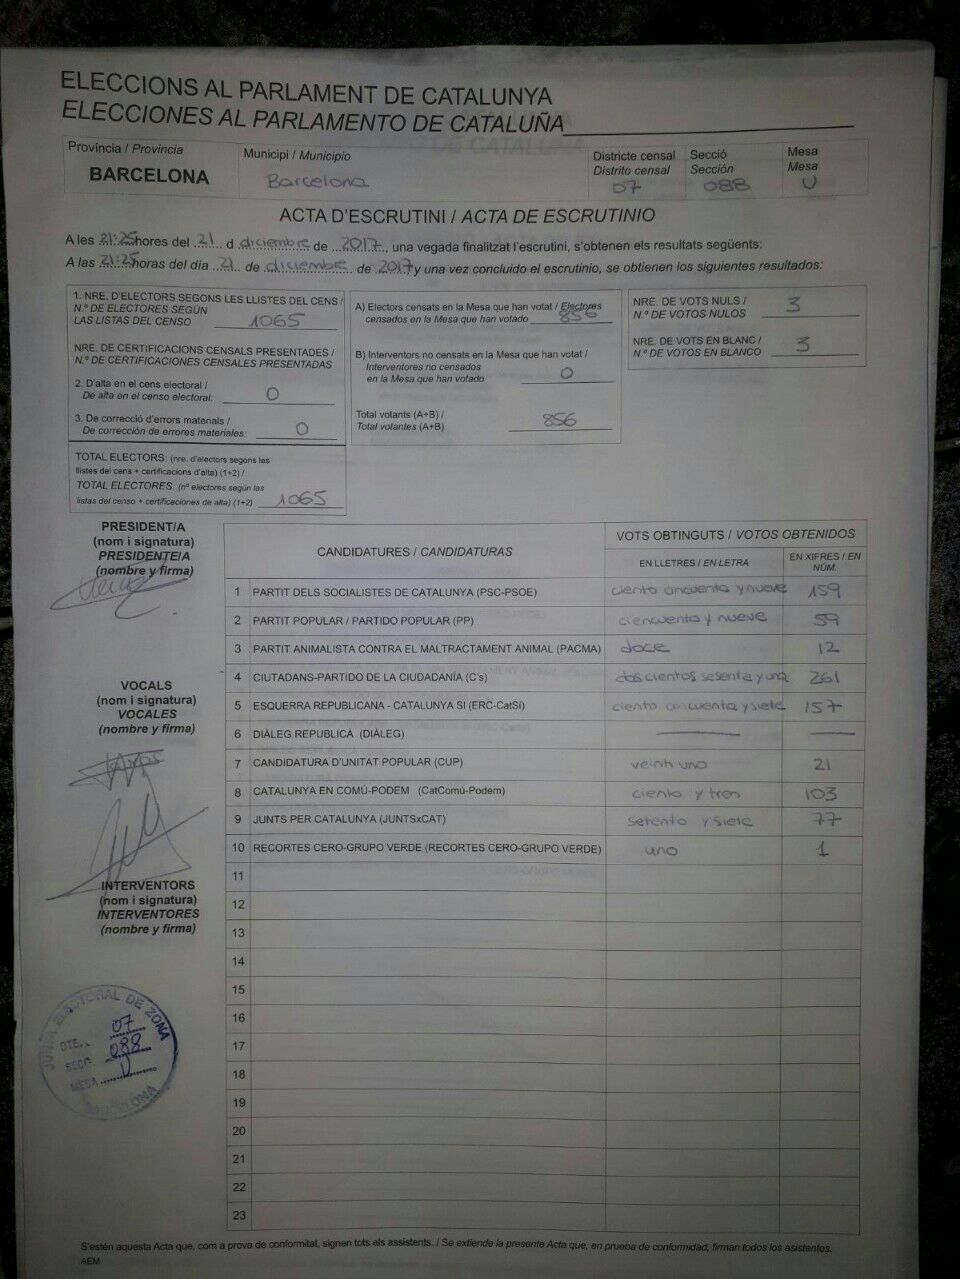 ELECCIONS AL PARLAMENT DE CATALUNYA
ELECCIONES AL PARLAMENTO DE CATALUÑA
Província / Provincia
BARCELONA
Municipi / Municipio
Barcelona
Districte censal
Distrito censal
07
Secció
Sección
088
Mesa
Mesa
U
ACTA D'ESCRUTINI / ACTA DE ESCRUTINIO
A les 21:25 hores del 21 d diciembre de 2017, una vegada finalitzat l'escrutini, s'obtenen els resultats següents:
A las 21:25 horas del día 21 de diciembre de 2017 y una vez concluido el escrutinio, se obtienen los siguientes resultados:
1. NRE. D'ELECTORS SEGONS LES LLISTES DEL CENS /
N.º DE ELECTORES SEGÚN
LAS LISTAS DEL CENSO 1065
NRE. DE CERTIFICACIONS CENSALS PRESENTADES /
N.º DE CERTIFICACIONES CENSALES PRESENTADAS
2. D'alta en el cens electoral /
De alta en el censo electoral: 0
3. De correcció d'errors materials /
De corrección de errores materiales: 0
TOTAL ELECTORS: (nre. d'electors segons les
llistes del cens + certificacions d'alta) (1+2) /
TOTAL ELECTORES: (nº electores según las
listas del censo + certificaciones de alta) (1+2) 1065
A) Electors censats en la Mesa que han votat / Electores
censados en la Mesa que han votado 856
B) Interventors no censats en la Mesa que han votat /
Interventores no censados
en la Mesa que han votado 0
Total votants (A+B) /
Total votantes (A+B) 856
NRE. DE VOTS NULS /
N.º DE VOTOS NULOS 3
NRE. DE VOTS EN BLANC /
N.º DE VOTOS EN BLANCO 3
PRESIDENT/A
(nom i signatura)
PRESIDENTE/A
(nombre y firma)
VOCALS
(nom i signatura)
VOCALES
(nombre y firma)
INTERVENTORS
(nom i signatura)
INTERVENTORES
(nombre y firma)
JUNTA ELECTORAL DE ZONA
DTE. 07
SECC. 088
MESA U
BARCELONA
CANDIDATURES / CANDIDATURAS
VOTS OBTINGUTS / VOTOS OBTENIDOS
EN LLETRES / EN LETRA
EN XIFRES / EN NÚM.
1 PARTIT DELS SOCIALISTES DE CATALUNYA (PSC-PSOE) ciento cincuenta y nueve 159
2 PARTIT POPULAR / PARTIDO POPULAR (PP) ciencuenta y nueve 59
3 PARTIT ANIMALISTA CONTRA EL MALTRACTAMENT ANIMAL (PACMA) doce 12
4 CIUTADANS-PARTIDO DE LA CIUDADANÍA (C's) dos cientos sesenta y una 261
5 ESQUERRA REPUBLICANA - CATALUNYA SI (ERC-CatSí) ciento cincuenta y siete 157
6 DIÀLEG REPUBLICÀ (DIÀLEG)
7 CANDIDATURA D'UNITAT POPULAR (CUP) veinti uno 21
8 CATALUNYA EN COMÚ-PODEM (CatComú-Podem) ciento y tres 103
9 JUNTS PER CATALUNYA (JUNTSxCAT) setenta y siete 77
10 RECORTES CERO-GRUPO VERDE (RECORTES CERO-GRUPO VERDE) uno 1
11
12
13
14
15
16
17
18
19
20
21
22
23
S'estén aquesta Acta que, com a prova de conformitat, signen tots els assistents. / Se extiende la presente Acta que, en prueba de conformidad, firman todos los asistentes.
AEM